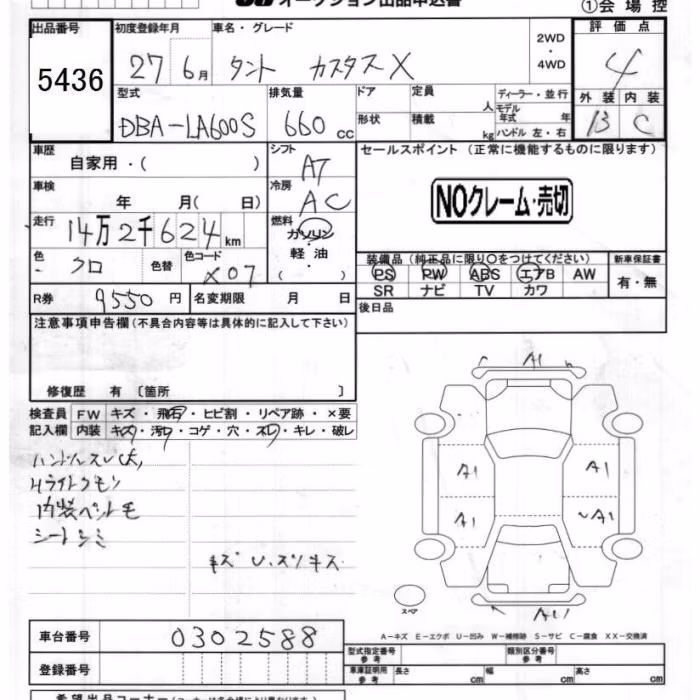 オークション出品申込書
①会場控
出品番号 初度登録年月 車名・グレード 2WD・4WD 評価点
5436 27 6月 タント カスタスX 4
型式 排気量 ドア 定員 人 ディーラー・並行 外装 内装
DBA-LA600S 660 cc 形状 積載 kg モデル年式 年 ハンドル 左・右 B C
車歴 自家用・( ) シフト AT セールスポイント (正常に機能するものに限ります)
車検 年 月( 日) 冷房 AC NOクレーム・売切
走行 14万2千624km 燃料 ガソリン・軽油 ( )
色 クロ 色替 色コード X07
装備品(純正品に限り○をつけてください) 新車保証書
PS PW ABS エアB AW 有・無
SR ナビ TV カワ
R券 9550円 名変期限 月 日 後日品
注意事項申告欄(不具合内容等は具体的に記入して下さい)
修復歴 有〔箇所 〕
検査員 FW キズ・飛石・ヒビ割・リペア跡・×要
記入欄 内装 キズ・汚レ・コゲ・穴・スレ・キレ・破レ
ハンドルスレ
Hライトクモリ
シートシミ
A1
A1 A1
A1 A1
スペア
A-キズ E-エクボ U-凹み W-補修跡 S-サビ C-腐食 XX-交換済
車台番号 0302588 型式指定番号 参考 類別区分番号 参考
登録番号 車庫証明用 参考 長さ cm 幅 cm 高さ cm
希望出品コーナー